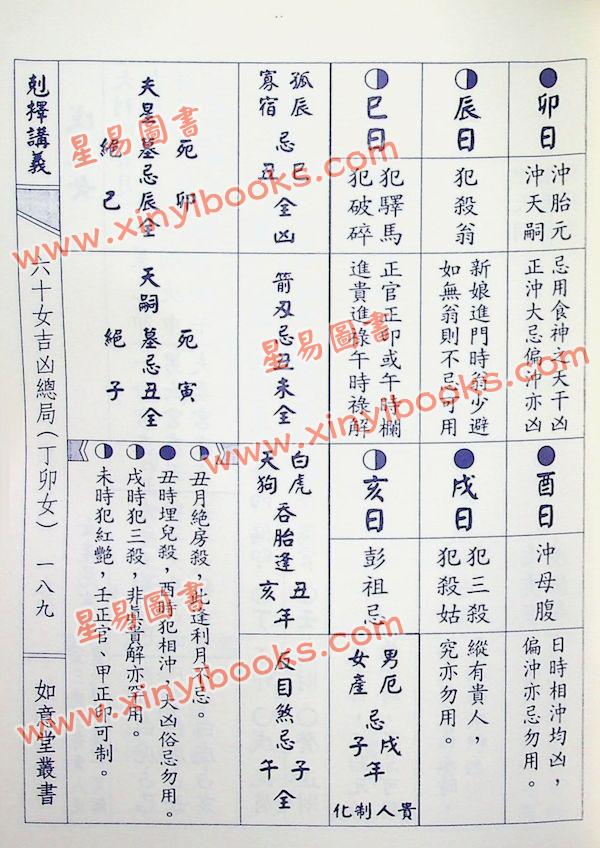 卯日
沖胎元
沖天嗣
忌用食神之大干凶
正沖大忌偏沖亦凶
辰日
犯殺翁
新娘進門時翁少避
如無翁則不忌可用
巳日
犯驛馬
犯破碎
正官正印或午時欄
進貴進祿午時祿解
孤辰 忌巳全凶
寡宿 忌丑全凶
箭刃忌丑未全
夫星墓忌辰全
死卯
絕巳
天嗣墓忌丑全
死寅
絕子
酉日
沖母腹
日時相沖均凶，
偏沖亦忌勿用。
戌日
犯三殺
犯殺姑
縱有貴人，
究亦勿用。
亥日
彭祖忌
男厄忌戌年
女產忌子年
貴人制化
白虎吞胎逢丑年
天狗吞胎逢亥年
反目煞忌子午全
丑月絕房殺，此逢利月不忌。
丑時埋兒殺，酉時犯相沖，大凶俗忌勿用。
戌時犯三殺，非真貴解亦罕用。
未時犯紅艷，壬正官、甲正印可制。
剋擇講義
六十女吉凶總局（丁卯女）
一八九
如意堂叢書
星易圖書
www.xinyibooks.com
星易圖書
www.xinyibooks.com
星易圖書
www.xinyibooks.com
星易圖書
www.xinyibooks.com